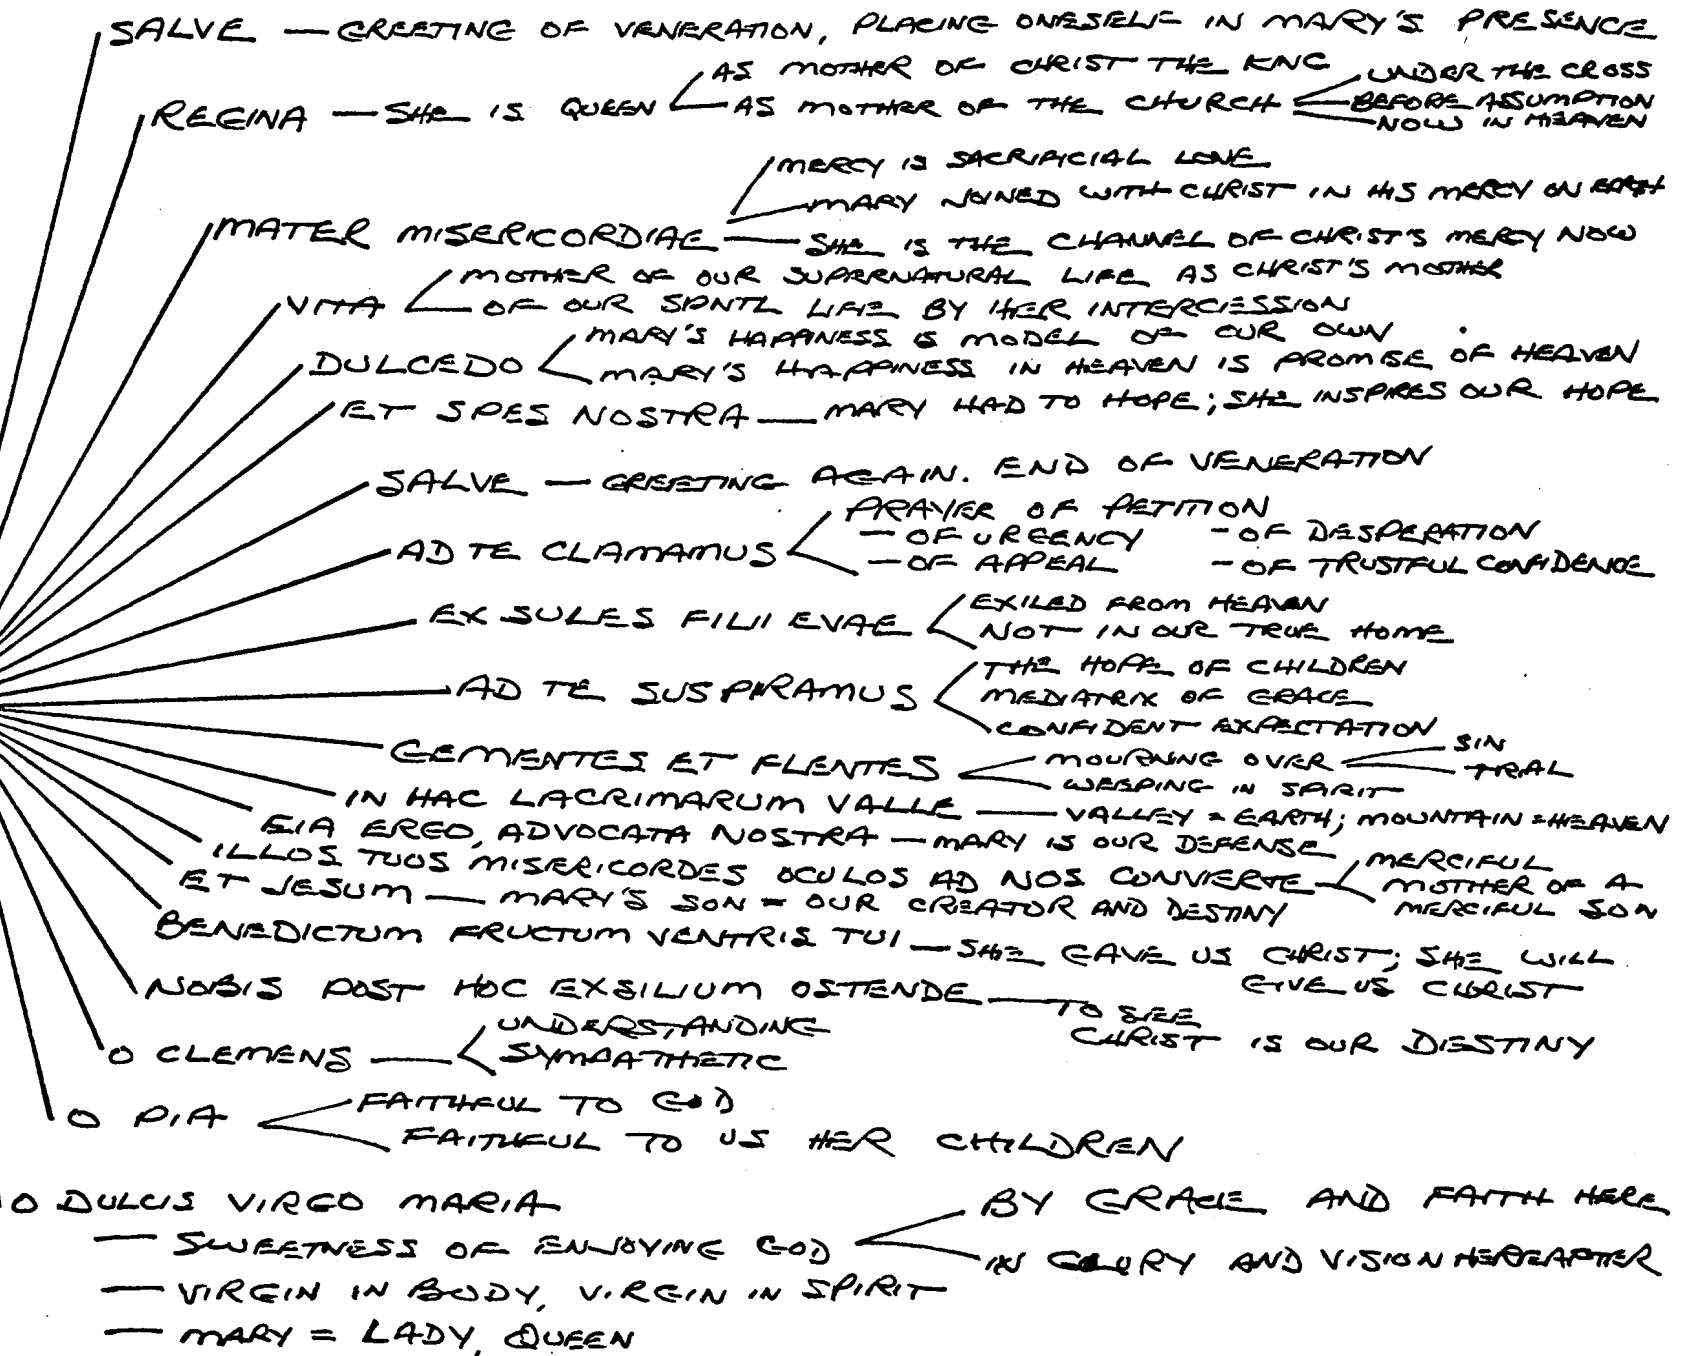 SALVE — GREETING OF VENERATION, PLACING ONESELF IN MARY'S PRESENCE
REGINA — SHE IS QUEEN
AS MOTHER OF CHRIST THE KING
AS MOTHER OF THE CHURCH
UNDER THE CROSS
BEFORE ASSUMPTION
NOW IN HEAVEN
MATER MISERICORDIAE
MERCY IS SACRIFICIAL LOVE
MARY JOINED WITH CHRIST IN HIS MERCY ON EARTH
SHE IS THE CHANNEL OF CHRIST'S MERCY NOW
VITA
MOTHER OF OUR SUPERNATURAL LIFE AS CHRIST'S MOTHER
OF OUR SPNTL LIFE BY HER INTERCESSION
DULCEDO
MARY'S HAPPINESS IS MODEL OF OUR OWN
MARY'S HAPPINESS IN HEAVEN IS PROMISE OF HEAVEN
ET SPES NOSTRA — MARY HAD TO HOPE; SHE INSPIRES OUR HOPE
SALVE — GREETING AGAIN. END OF VENERATION
AD TE CLAMAMUS
PRAYER OF PETITION
— OF URGENCY — OF DESPERATION
— OF APPEAL — OF TRUSTFUL CONFIDENCE
EXSULES FILII EVAE
EXILED FROM HEAVEN
NOT IN OUR TRUE HOME
AD TE SUSPIRAMUS
THE HOPE OF CHILDREN
MEDIATRIX OF GRACE
CONFIDENT EXPECTATION
GEMENTES ET FLENTES
MOURNING OVER
SIN
TRIAL
WEEPING IN SPIRIT
IN HAC LACRIMARUM VALLE — VALLEY = EARTH; MOUNTAIN = HEAVEN
EIA ERGO, ADVOCATA NOSTRA — MARY IS OUR DEFENSE
ILLOS TUOS MISERICORDES OCULOS AD NOS CONVERTE
MERCIFUL
MOTHER OF A
MERCIFUL SON
ET JESUM — MARY'S SON = OUR CREATOR AND DESTINY
BENEDICTUM FRUCTUM VENTRIS TUI — SHE GAVE US CHRIST; SHE WILL
GIVE US CHRIST
NOBIS POST HOC EXSILIUM OSTENDE — TO SEE
CHRIST IS OUR DESTINY
O CLEMENS —
UNDERSTANDING
SYMPATHETIC
O PIA
FAITHFUL TO GOD
FAITHFUL TO US HER CHILDREN
O DULCIS VIRGO MARIA
— SWEETNESS OF ENJOYING GOD
BY GRACE AND FAITH HERE
IN GLORY AND VISION HEREAFTER
— VIRGIN IN BODY, VIRGIN IN SPIRIT
— MARY = LADY, QUEEN